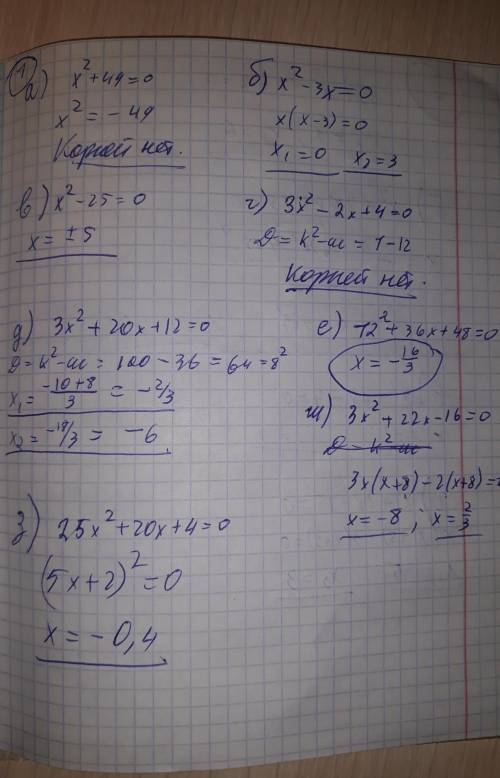 1
а) x²+49=0
x²=-49
Корней нет.
б) x²-3x=0
x(x-3)=0
x₁=0 x₂=3
в) x²-25=0
x=±5
г) 3x²-2x+4=0
D=k²-ac=1-12
Корней нет.
д) 3x²+20x+12=0
D=k²-ac=100-36=64=8²
x₁=(-10+8)/3=-2/3
x₂=-18/3=-6
е) 12²+36x+48=0
x=-16/3
ж) 3x²+22x-16=0
D=k²-ac
3x(x+8)-2(x+8)=
x=-8; x=2/3
з) 25x²+20x+4=0
(5x+2)²=0
x=-0,4